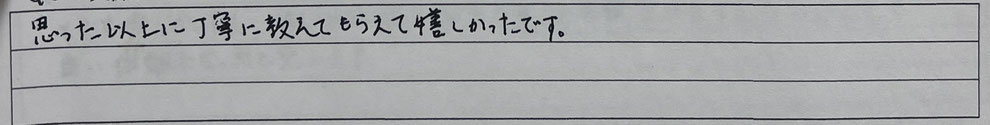 思った以上に丁寧に教えてもらえて嬉しかったです。